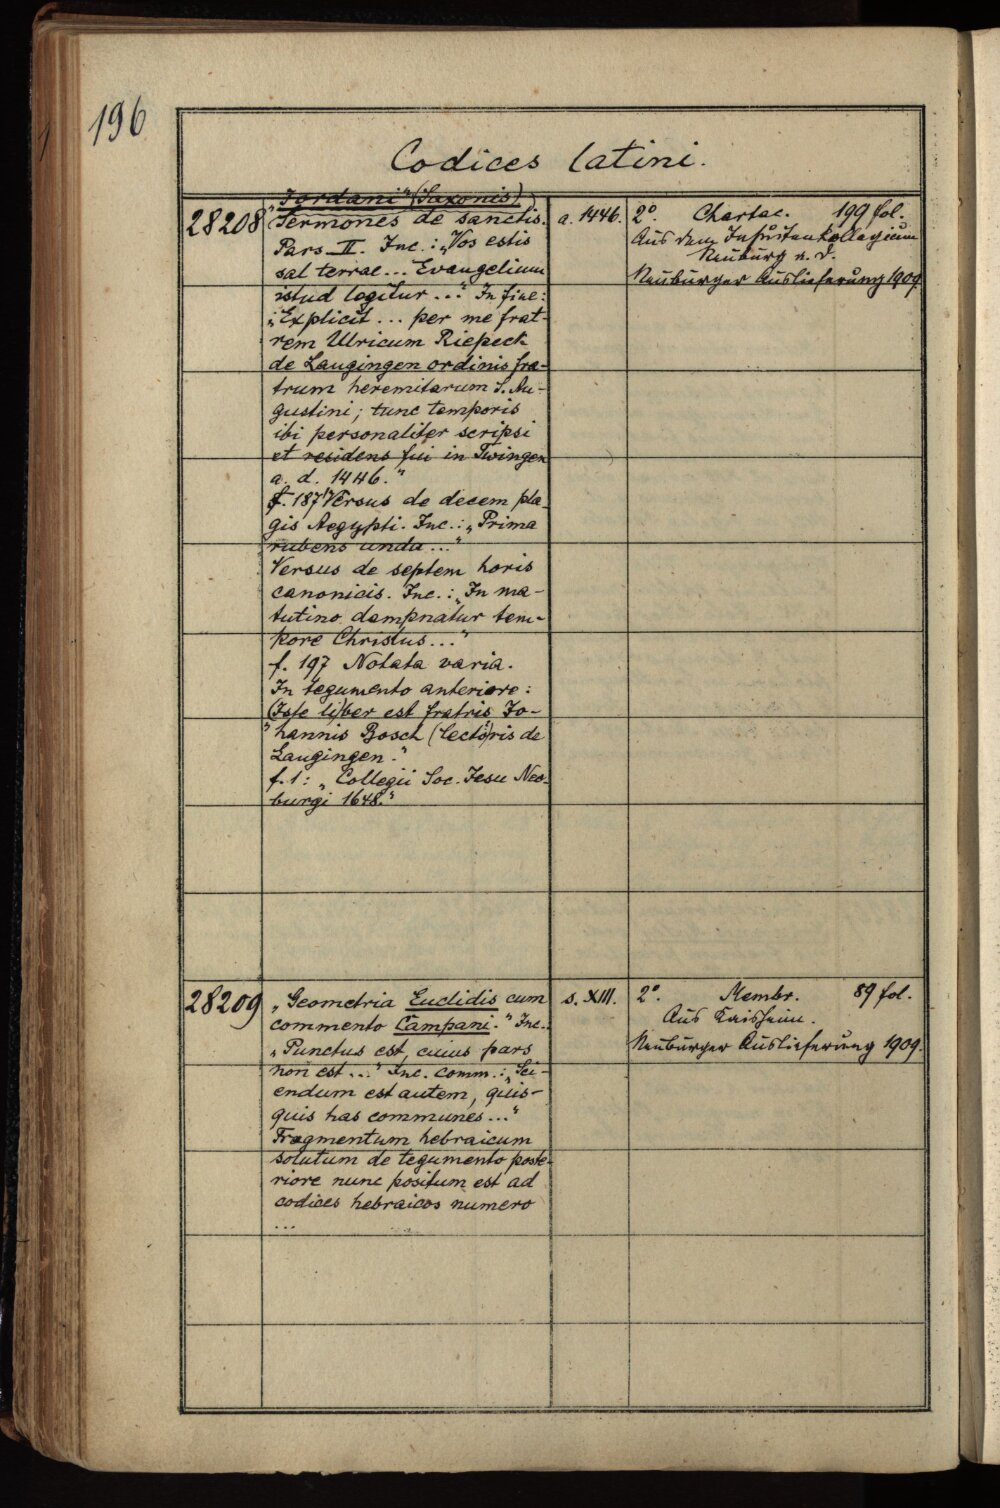 196
Codices latini.
28208
„Jordani" (Saxonis)
Sermones de sanctis.
Pars II. Inc.: „Vos estis
sal terrae... Evangelium
istud legitur..." In fine:
„Explicit... per me frat-
rem Ulricum Riepeck
de Laugingen ordinis fra-
trum heremitarum S. Au-
gustini; tunc temporis
ibi personaliter scripsi
et residens fui in Twingen
a. d. 1446."
f. 187 Versus de decem pla-
gis Aegypti. Inc.: „Prima
rubens unda..."
Versus de septem horis
canonicis. Inc.: „In ma-
tutino dampnatur tem-
pore Christus..."
f. 197 Notata varia.
In tegumento anteriore:
„Iste liber est fratris Jo-
hannis Bosch (lectoris de
Laugingen."
f. 1: „Collegii Soc. Jesu Neo-
burgi 1648."
a. 1446.
2°. Chartac. 199 fol.
Aus dem Jesuitenkollegium
Neuburg a. D.
Neuburger Auslieferung 1909.
28209
„Geometria Euclidis cum
commento Campani." Inc.:
„Punctus est, cuius pars
non est..." Inc. comm.: „Sci-
endum est autem, quis-
quis has communes..."
Fragmentum hebraicum
solutum de tegumento poste-
riore nunc positum est ad
codices hebraicos numero
...
s. XIII.
2°. Membr. 89 fol.
Aus Kaisheim.
Neuburger Auslieferung 1909.